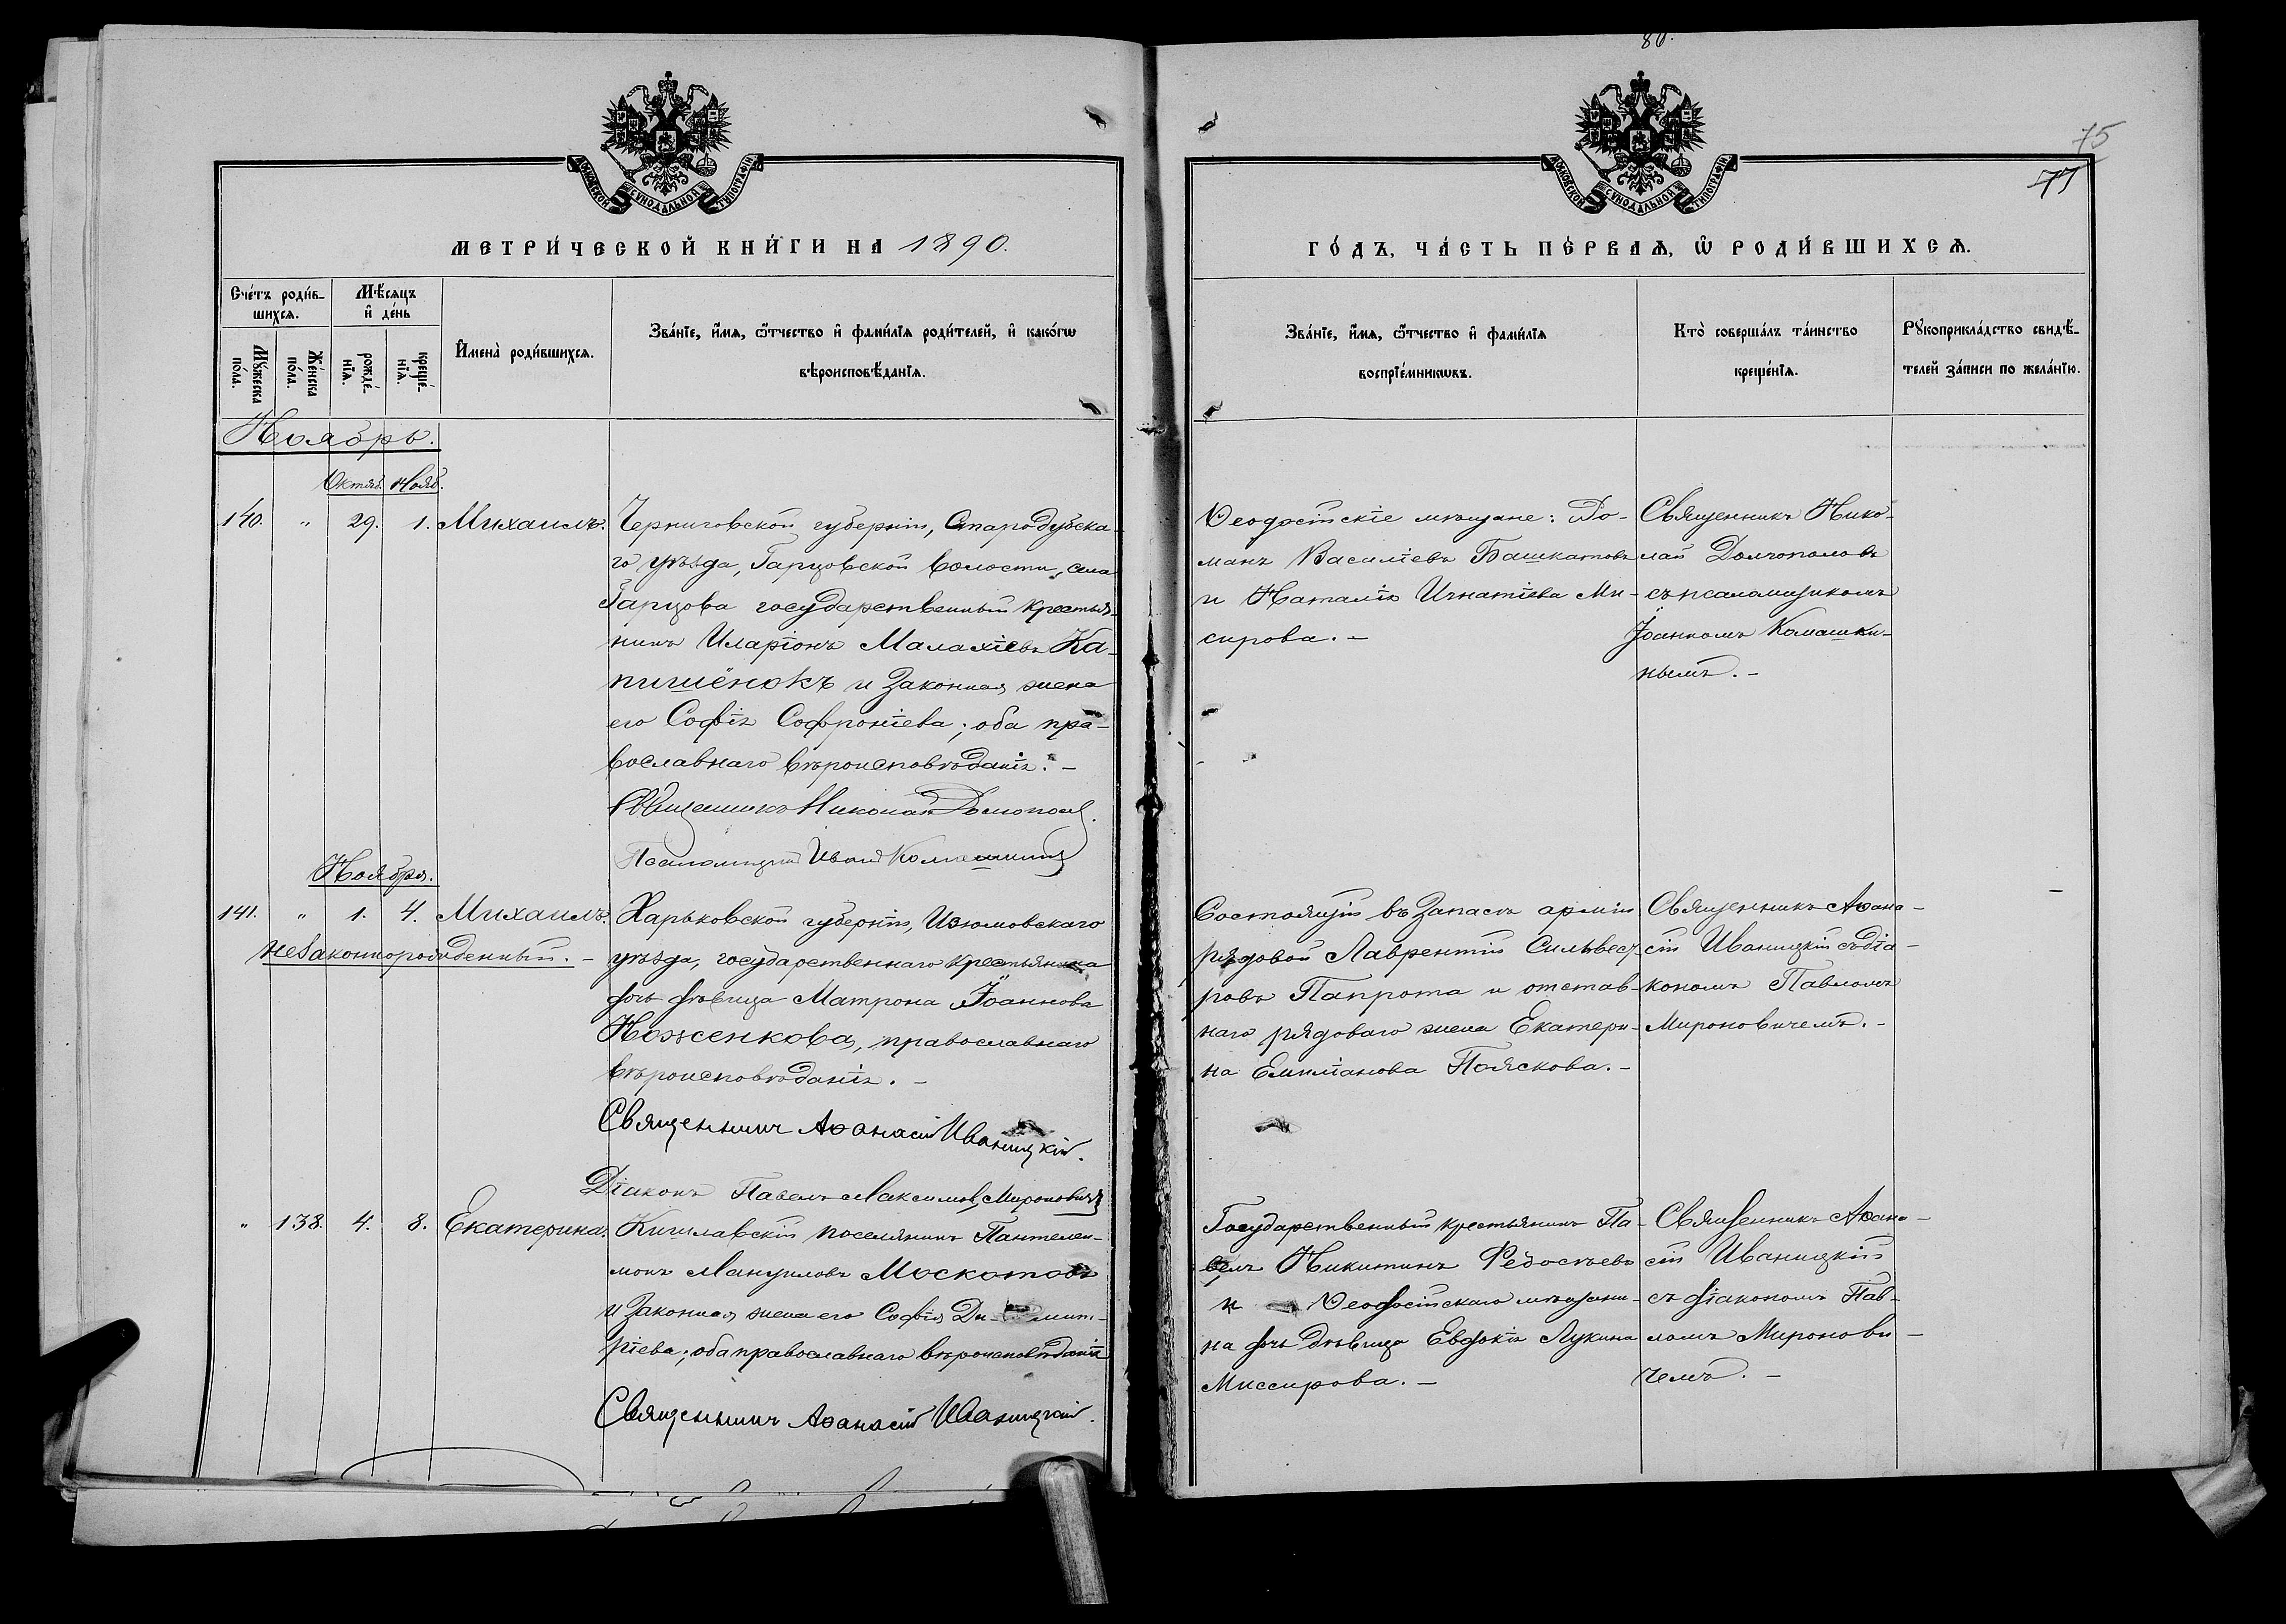 80.
75
77
МОСКОВСКОЙ СѴНОДАЛЬНОЙ ТИПОГРАФІИ
МОСКОВСКОЙ СѴНОДАЛЬНОЙ ТИПОГРАФІИ
МЕТРИ́ЧЕСКОЙ КНИ́ГИ НА 1890.
ГО́ДЪ, ЧА́СТЬ ПЕ́РВАѦ, Ѡ РОДИ́ВШИХСѦ.
Сче́тъ роди́в-
шихсѧ.
Мѣ́сѧцъ
и҆ де́нь
Мꙋ́жеска
по́ла.
Же́нска
по́ла.
рожде́-
нїѧ.
креще́-
нїѧ.
И҆мена̀ роди́вшихсѧ.
Зва́нїе, и҆́мѧ, ѻ҆́тчество и҆ фами́лїѧ роди́телей, и҆ како́гѡ
вѣроисповѣ́данїѧ.
Зва́нїе, и҆́мѧ, ѻ҆́тчество и҆ фами́лїѧ
воспрїе́мникѡвъ.
Кто̀ соверша́лъ та́инство
креще́нїѧ.
Рꙋкоприкла́дство свидѣ́-
телей за́писи по жела́нїю.
Ноябрь.
Октяб. Нояб.
140. " 29. 1. Михаилъ.
Черниговской губерніи, Стародубска-
го уѣзда, Гарцовской волости, села
Гарцова государственный крестья-
нинъ Иларіонъ Малахіевъ Ка-
пишёнокъ и законная жена
его Софія Софроніева; оба пра-
вославнаго вѣроисповѣданія. -
Священникъ Николай Долгопол
Псаломщикъ Иван Комашкин
Ѳеодосійскіе мѣщане: Ро-
манъ Василіевъ Башкатовъ
и Наталія Игнатіева Ми-
сирова. -
Священникъ Нико-
лай Долгополовъ
съ псаломщикомъ
Іоанномъ Комашки-
нымъ. -
Ноября.
141. " 1. 4. Михаилъ.
незаконнорожденный. -
Харьковской губерніи, Изюмовскаго
уѣзда, государственнаго крестьянина
дочь дѣвица Матрона Іоаннова
Ноженкова, православнаго
вѣроисповѣданія. -
Священникъ Аѳанасій Иваницкій.
Діаконъ Павелъ Максимов. Мироновичъ
Состоящій въ запасѣ арміи
рядовой Лаврентій Сильвест-
ровъ Папрота и отстав-
наго рядоваго жена Екатери-
на Емиліанова Пояскова. -
Священникъ Аѳана-
сій Иваницкій съ діа-
кономъ Павломъ
Мироновичемъ. -
" 138. 4. 8. Екатерина.
Кишлавскій поселянинъ Пантелеи-
монъ Мануиловъ Москотовъ
и законная жена его Софія Ди- мит-
ріева; оба православнаго вѣроисповѣданія
Священникъ Аѳанасій Иваницкій.
Государственный крестьянинъ Па-
велъ Никитинъ Ѳедосѣевъ
и Ѳеодосійскаго мѣщани-
на дочь дѣвица Евдокія Лукина
Миссирова. -
Священникъ Аѳана-
сій Иваницкій
съ діакономъ Пав-
ломъ Миронови-
чемъ. -